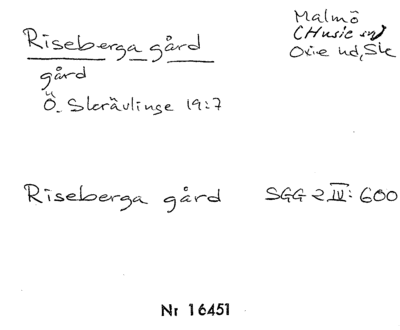 Riseberga gård
Malmö
(Husie sn)
Oxie hd, Sk
gård
Ö. Skrävlinge 19:7
Riseberga gård SGG 2 IV: 600
Nr 16451